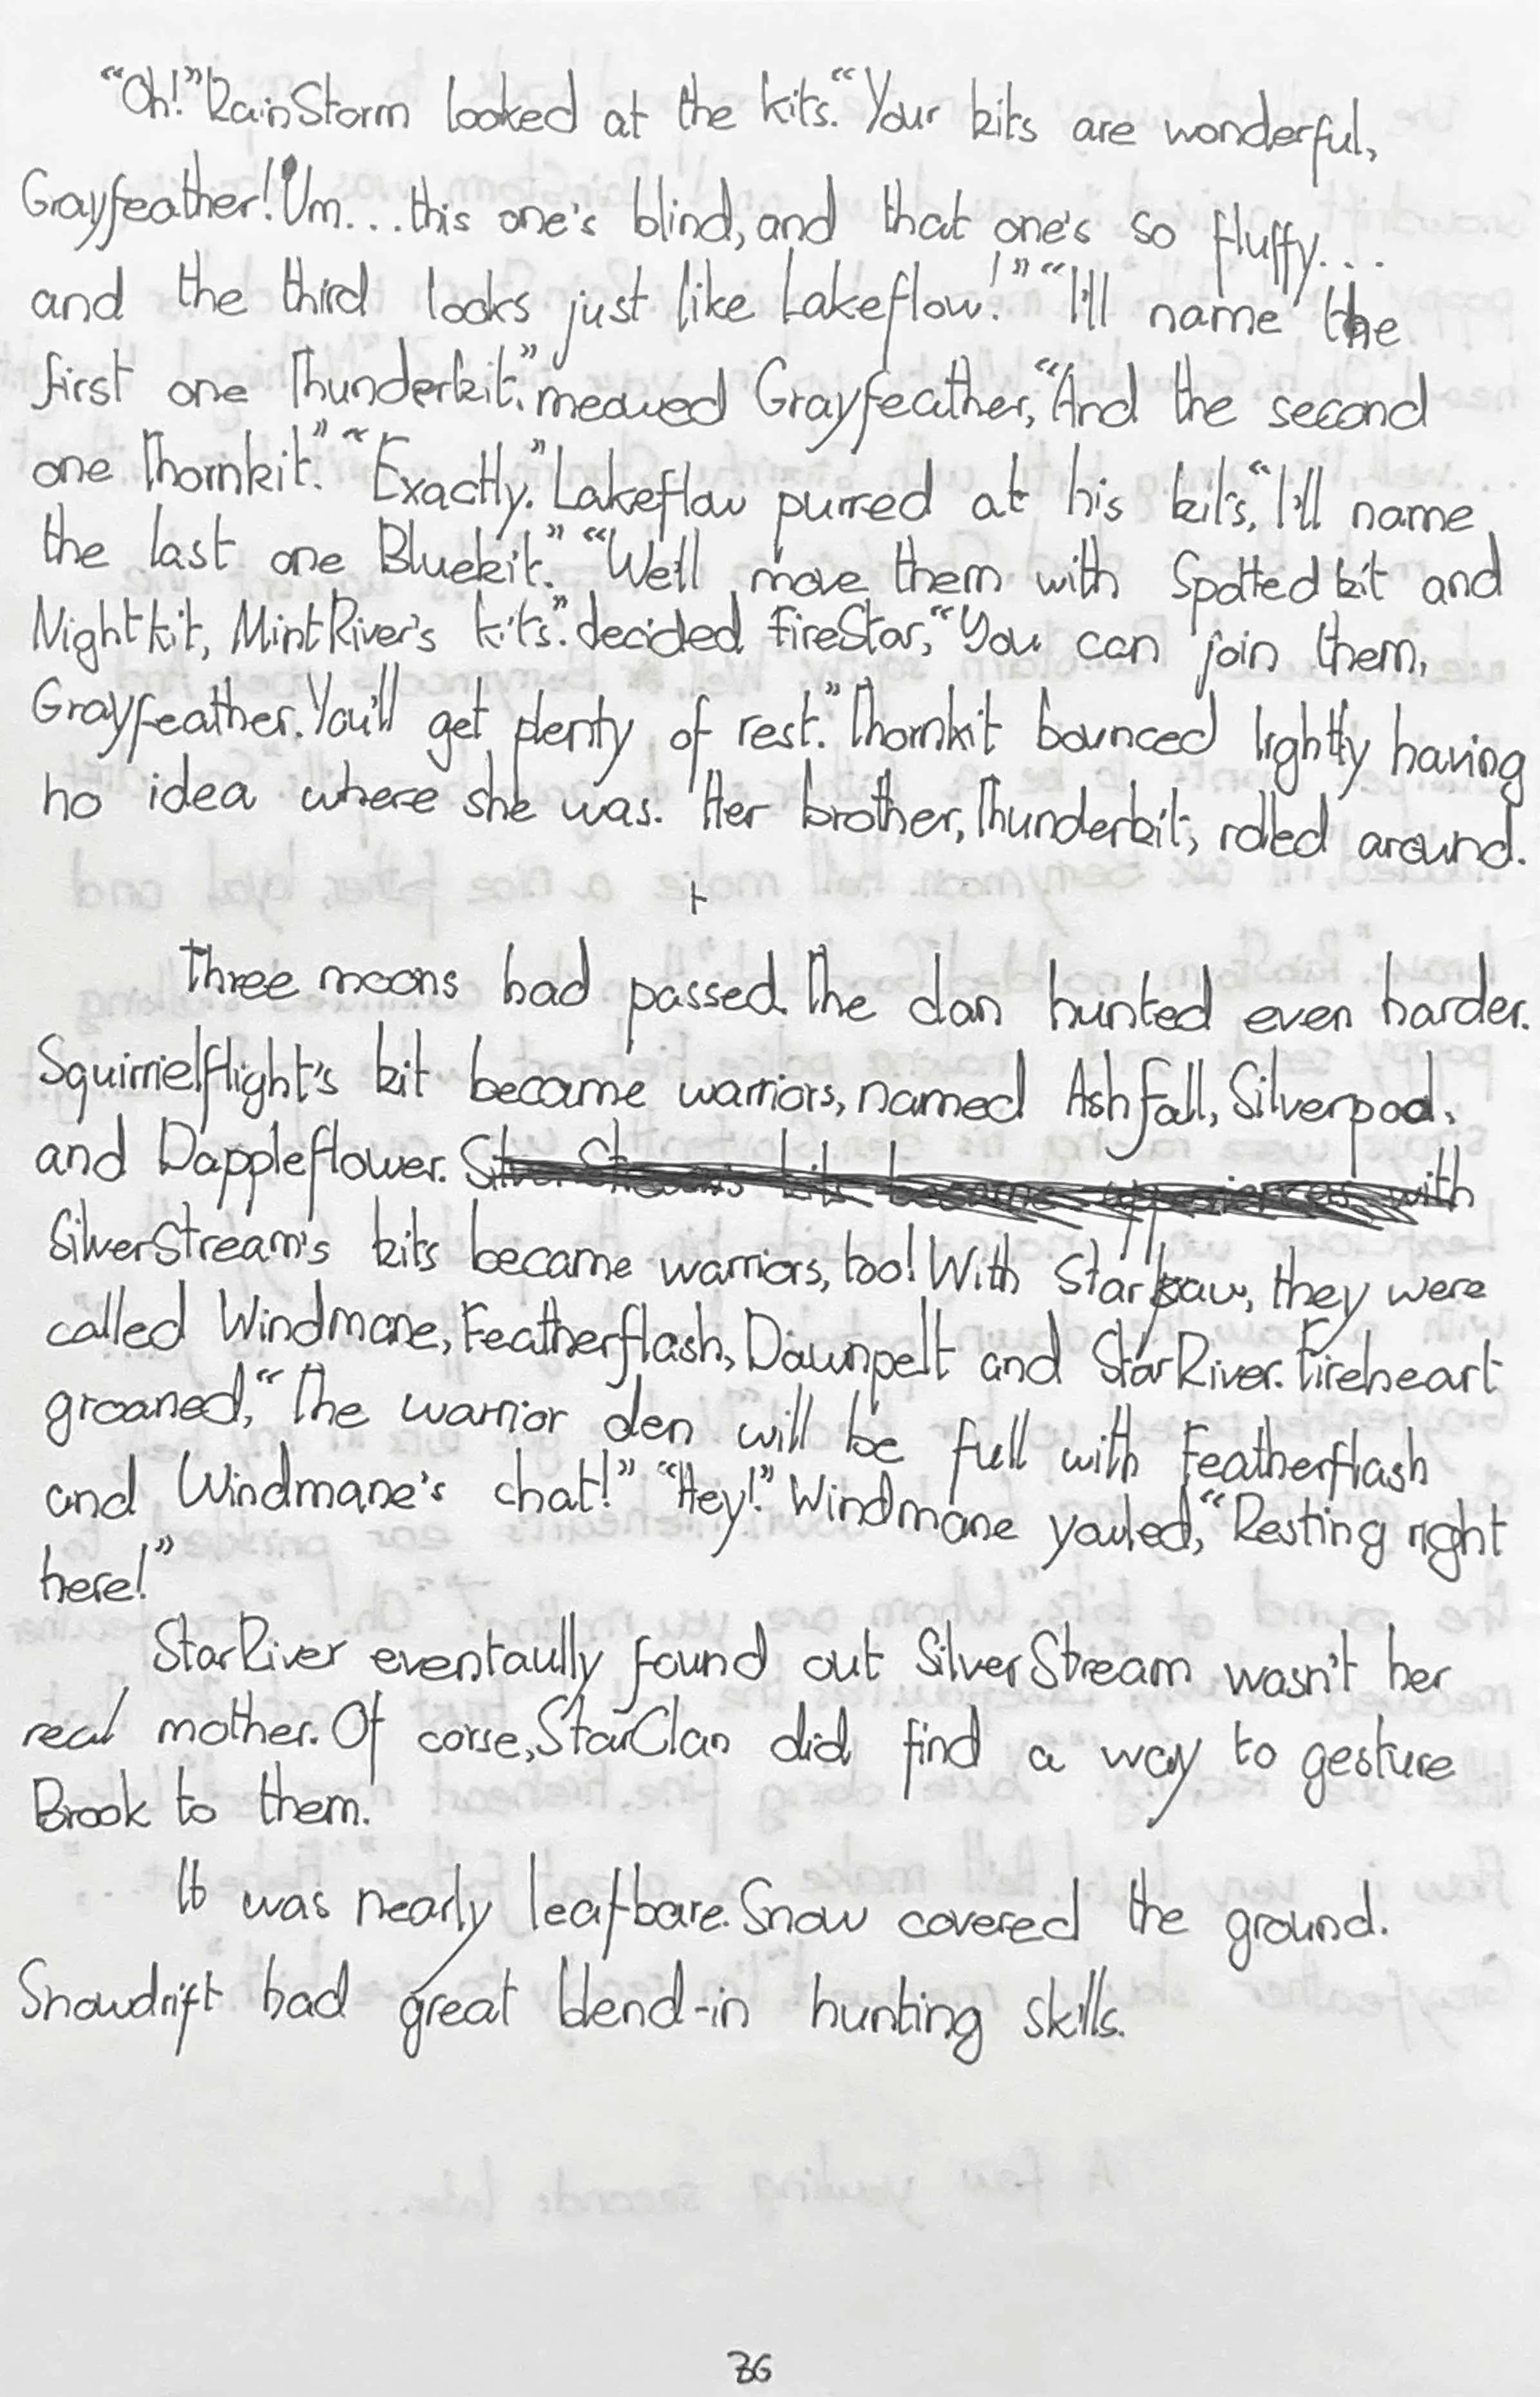 “Oh!” RainStorm looked at the kits. “Your kits are wonderful,
Grayfeather! Um... this one's blind, and that one's so fluffy...
and the third looks just like Lakeflow!” “I'll name the
first one Thunderkit.” meowed Grayfeather, “And the second
one Thornkit.” “Exactly.” Lakeflow purred at his kits, “I'll name
the last one Bluekit.” “We'll move them with Spottedkit and
Nightkit, MintRiver's kits.” decided FireStar, “You can join them,
Grayfeather. You'll get plenty of rest.” Thornkit bounced lightly having
no idea where she was. Her brother, Thunderkit, rolled around.
+
Three moons had passed. The clan hunted even harder.
Squirrielflight's kit became warriors, named Ashfall, Silverpool,
and Dappleflower. with
SilverStream's kits became warriors, too! With Starpaw, they were
called Windmane, Featherflash, Dawnpelt and StarRiver. Fireheart
groaned, “The warrior den will be full with Featherflash
and Windmane's chat!” “Hey!” Windmane yowled, “Resting right
here!”
StarRiver eventaully found out SilverStream wasn't her
real mother. Of corse, StarClan did find a way to gesture
Brook to them.
It was nearly leaf-bare. Snow covered the ground.
Snowdrift had great blend-in hunting skills.
36